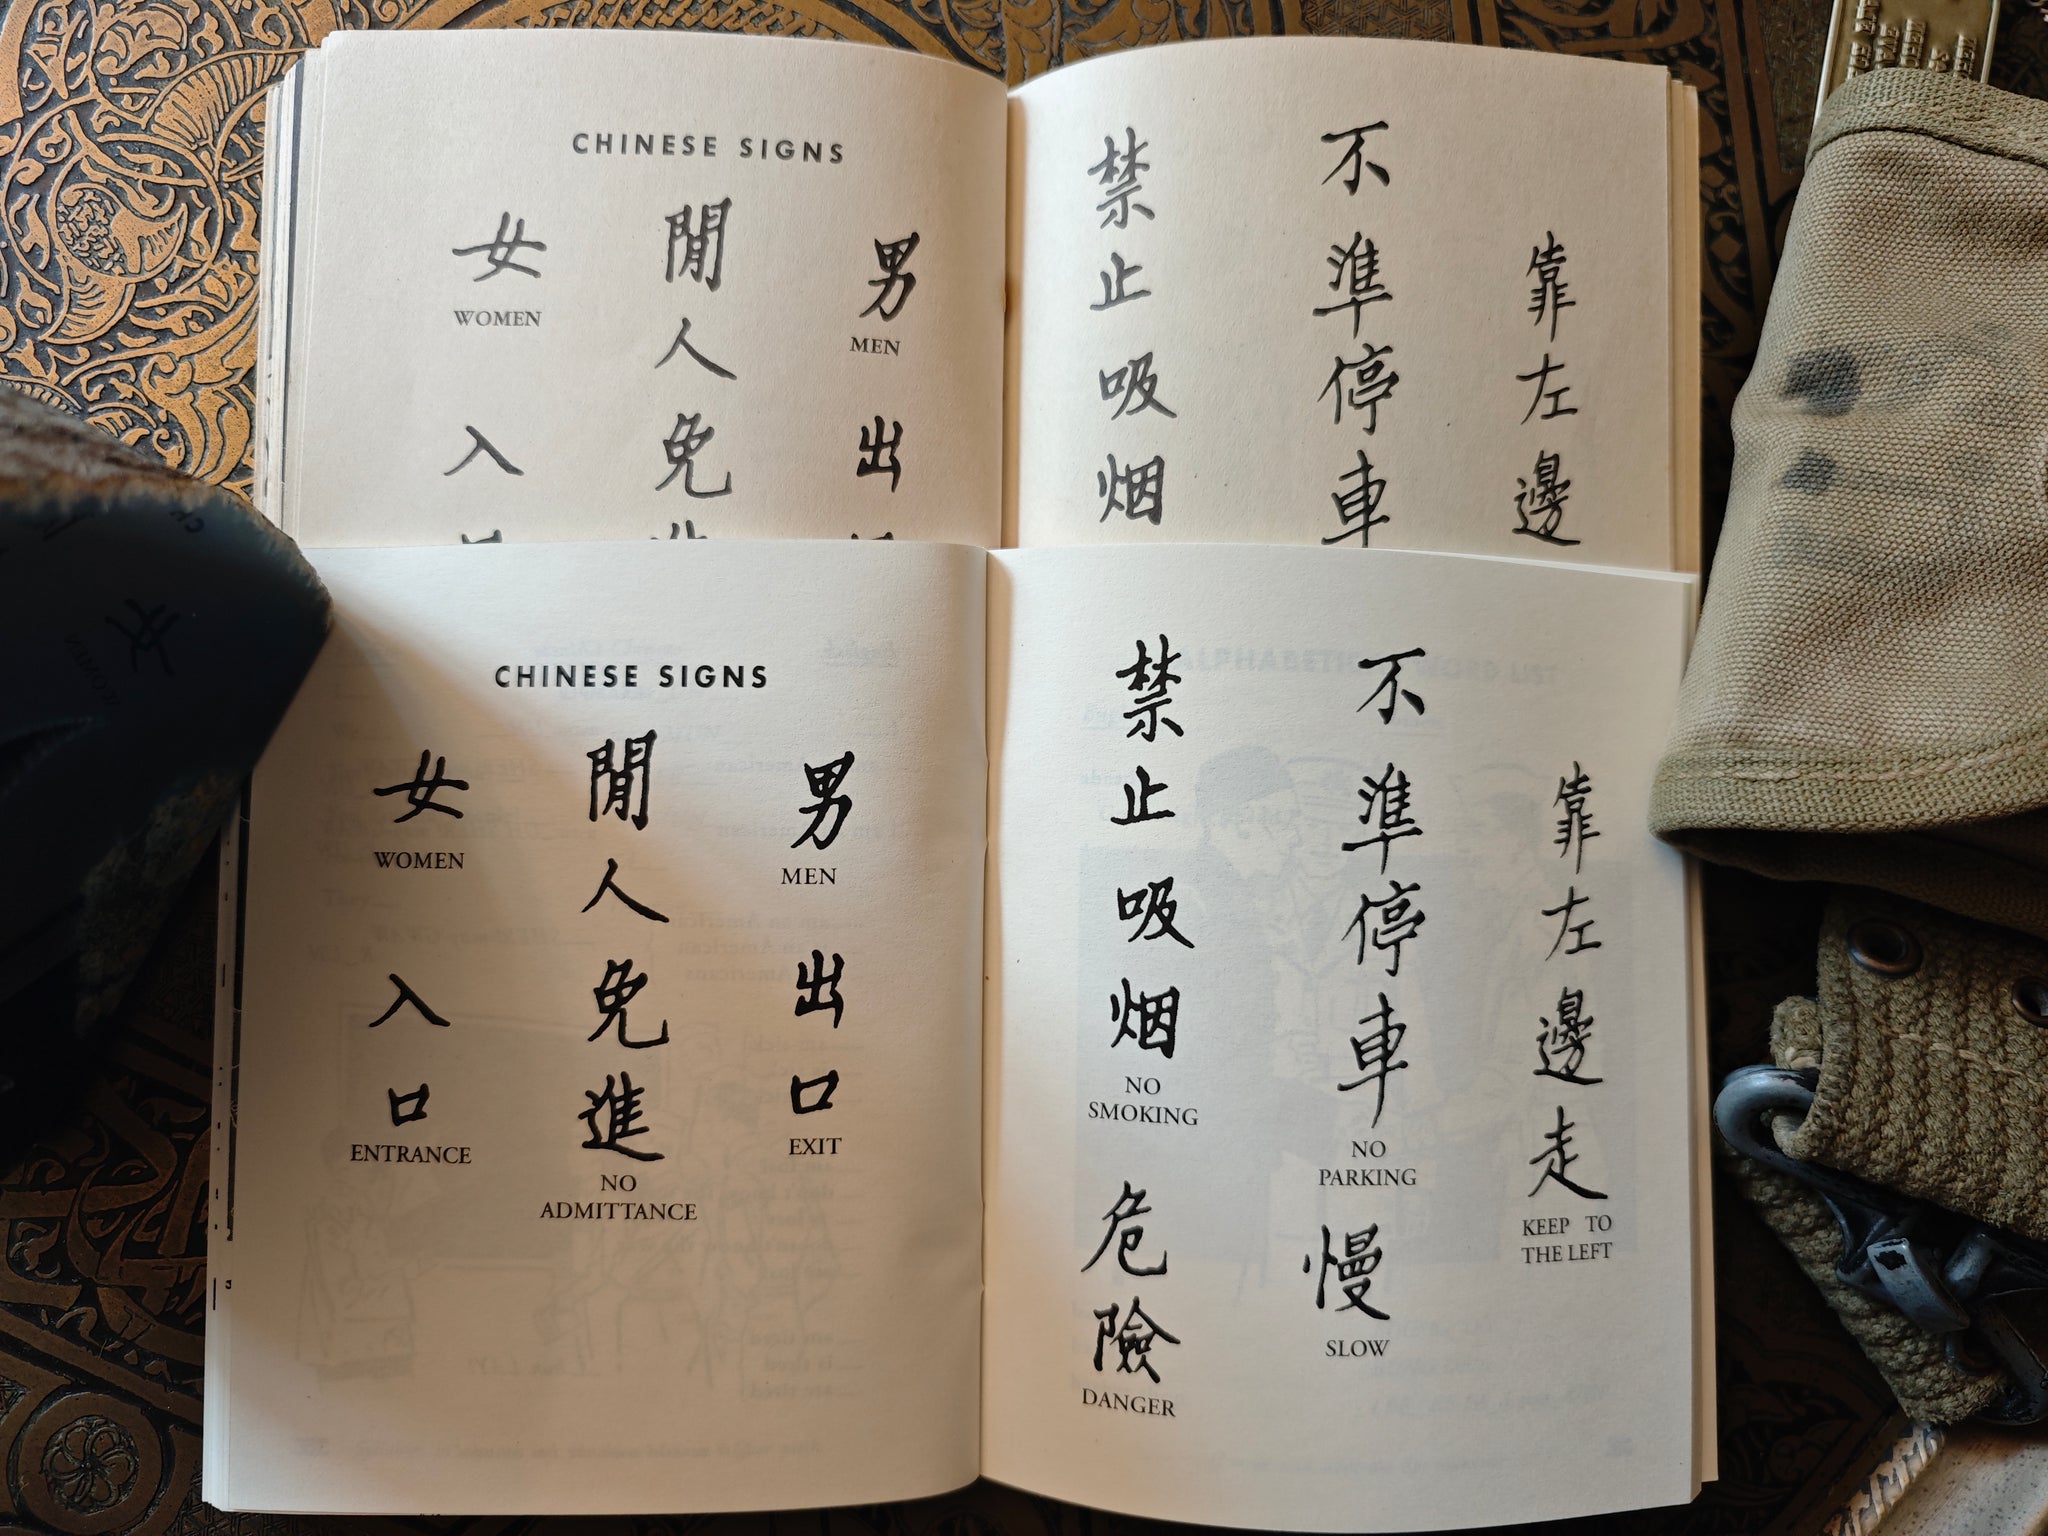 CHINESE SIGNS
女
WOMEN
入
閒人免
男
MEN
出
禁止吸烟
不準停車
靠左邊
CHINESE SIGNS
女
WOMEN
入口
ENTRANCE
閒人免進
NO
ADMITTANCE
男
MEN
出口
EXIT
禁止吸烟
NO
SMOKING
危險
DANGER
不準停車
NO
PARKING
慢
SLOW
靠左邊走
KEEP TO
THE LEFT